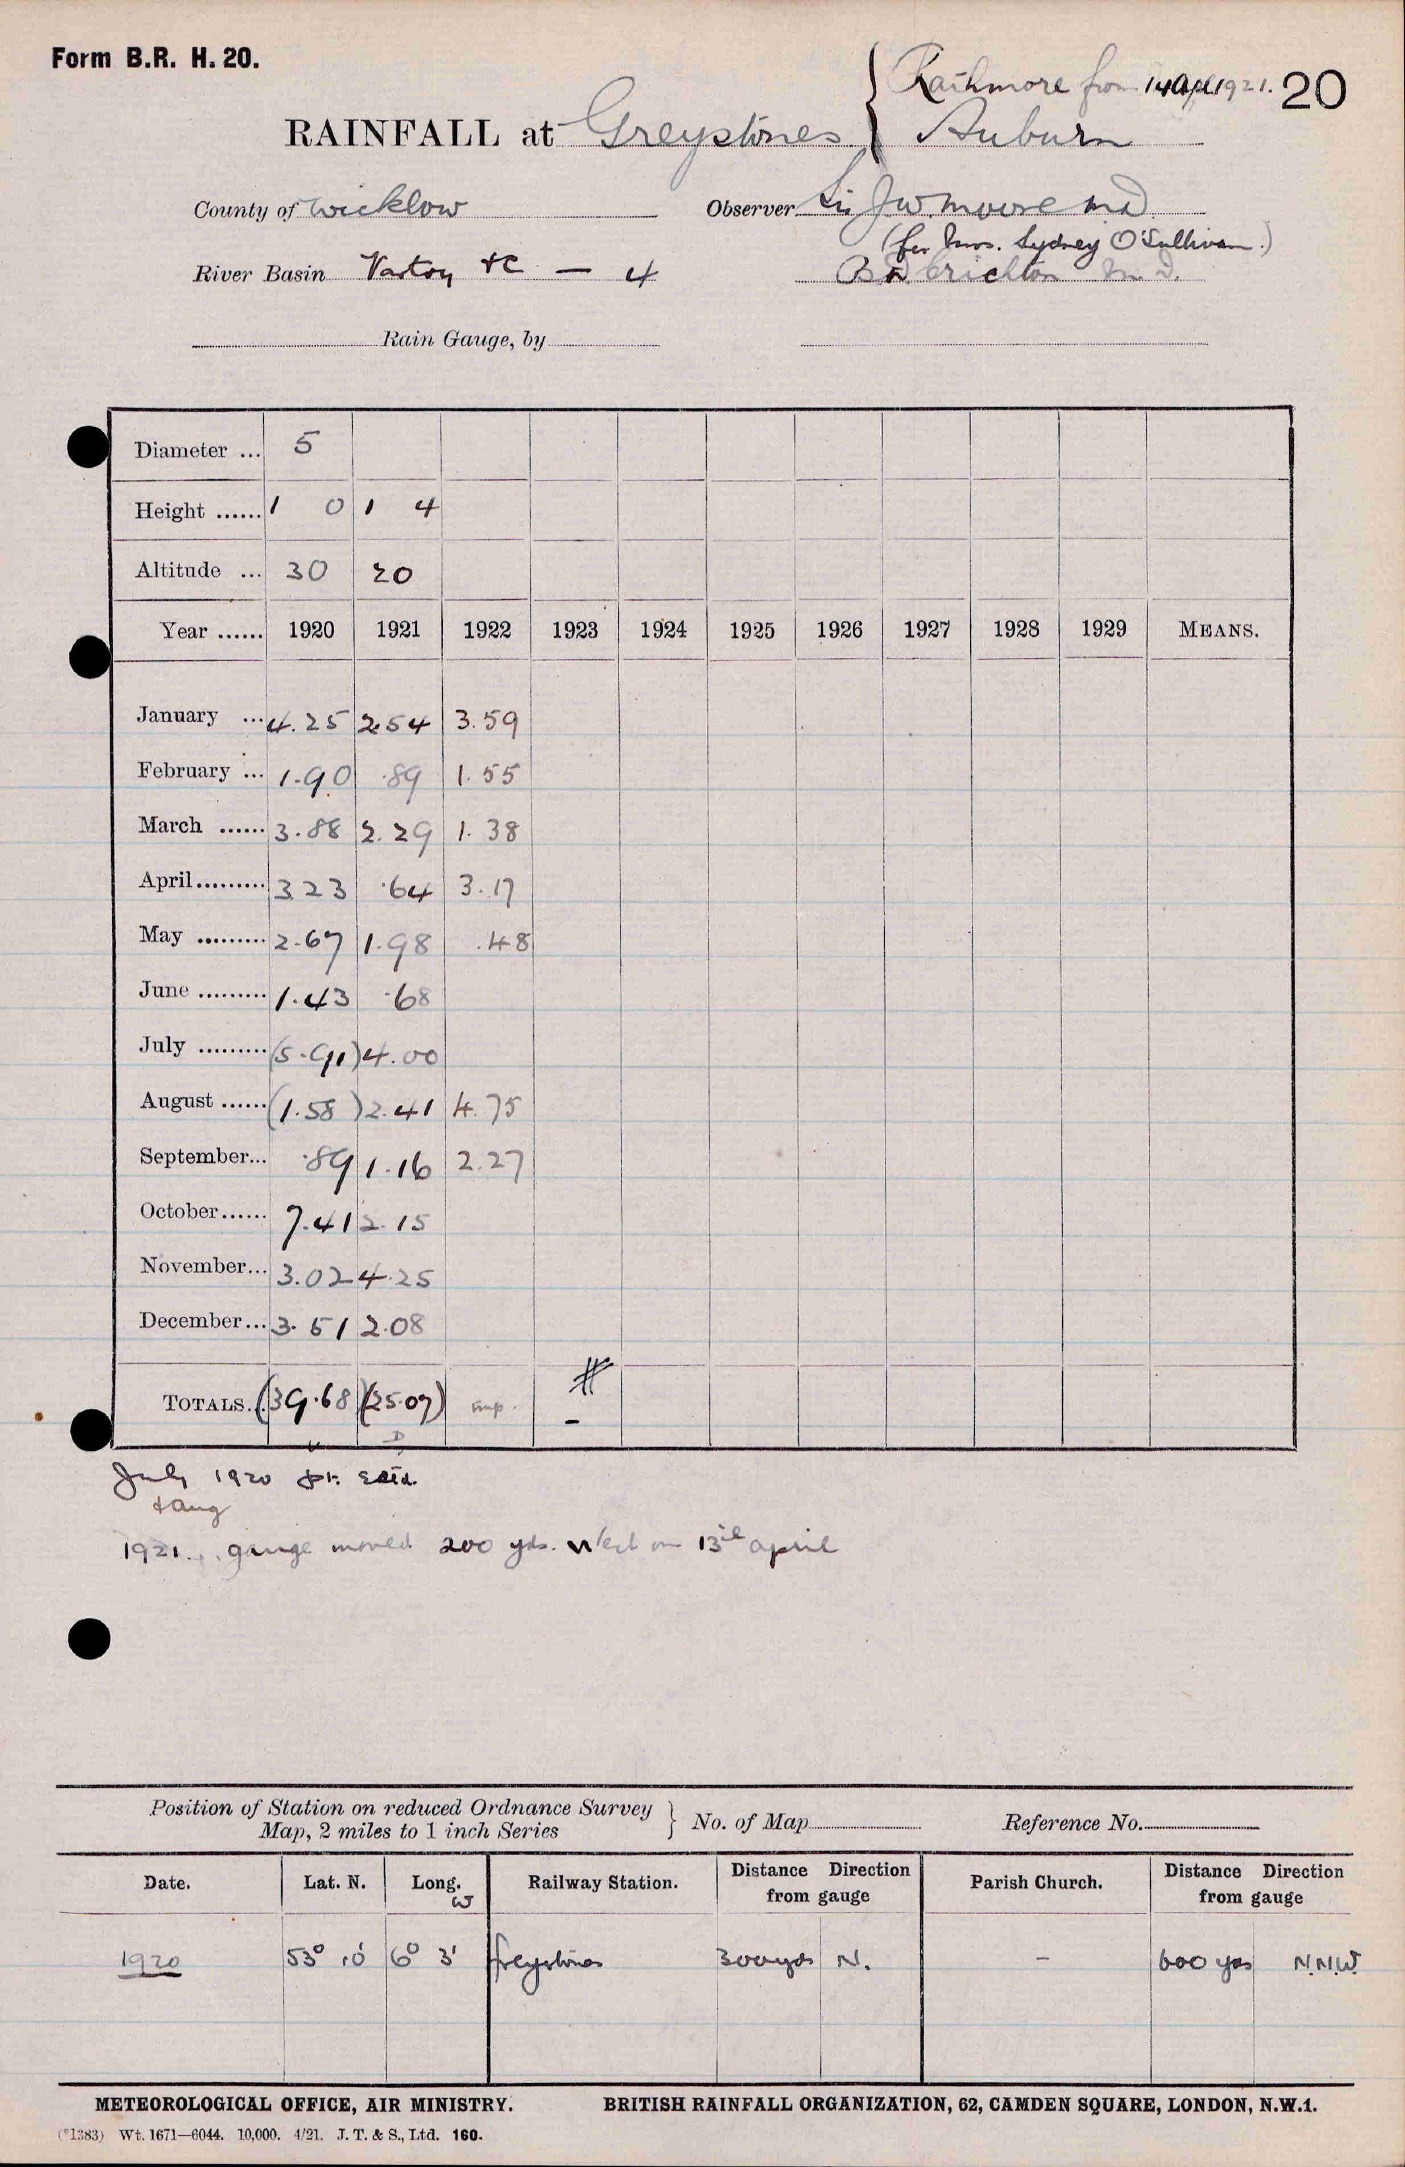 Form B.R. H. 20.
Rathmore from 14 Apl 1921. 20
RAINFALL at Greystones { Auburn
County of Wicklow Observer Sir J W. Moore M D
(for Mrs. Sydney O'Sullivan.)
River Basin Vartry &c — 4 Crichton M. D.
Rain Gauge, by
Diameter ... 5
Height ...... 1 0 1 4
Altitude ... 30 20
Year ...... 1920 1921 1922 1923 1924 1925 1926 1927 1928 1929 MEANS.
January ... 4.25 2.54 3.59
February ... 1.90 .89 1.55
March ...... 3.88 2.29 1.38
April ......... 3.23 .64 3.17
May ......... 2.67 1.98 .48
June ......... 1.43 .68
July ......... (5.91) 4.00
August ...... (1.58) 2.41 4.75
September... .89 1.16 2.27
October ...... 7.41 2.15
November... 3.02 4.25
December... 3.51 2.08
TOTALS... (39.68) (25.07) imp. # -
D
July 1920 pt. estd.
& Aug
1921. gauge moved 200 yds. West on 13th April
Position of Station on reduced Ordnance Survey
Map, 2 miles to 1 inch Series } No. of Map Reference No.
Date. Lat. N. Long. W Railway Station. Distance Direction from gauge Parish Church. Distance Direction from gauge
1920 53° 10' 6° 3' Greystones 300 yds N. – 600 yds N.N.W.
METEOROLOGICAL OFFICE, AIR MINISTRY. BRITISH RAINFALL ORGANIZATION, 62, CAMDEN SQUARE, LONDON, N.W.1.
(*1383) Wt. 1671—6044. 10,000. 4/21. J. T. & S., Ltd. 160.